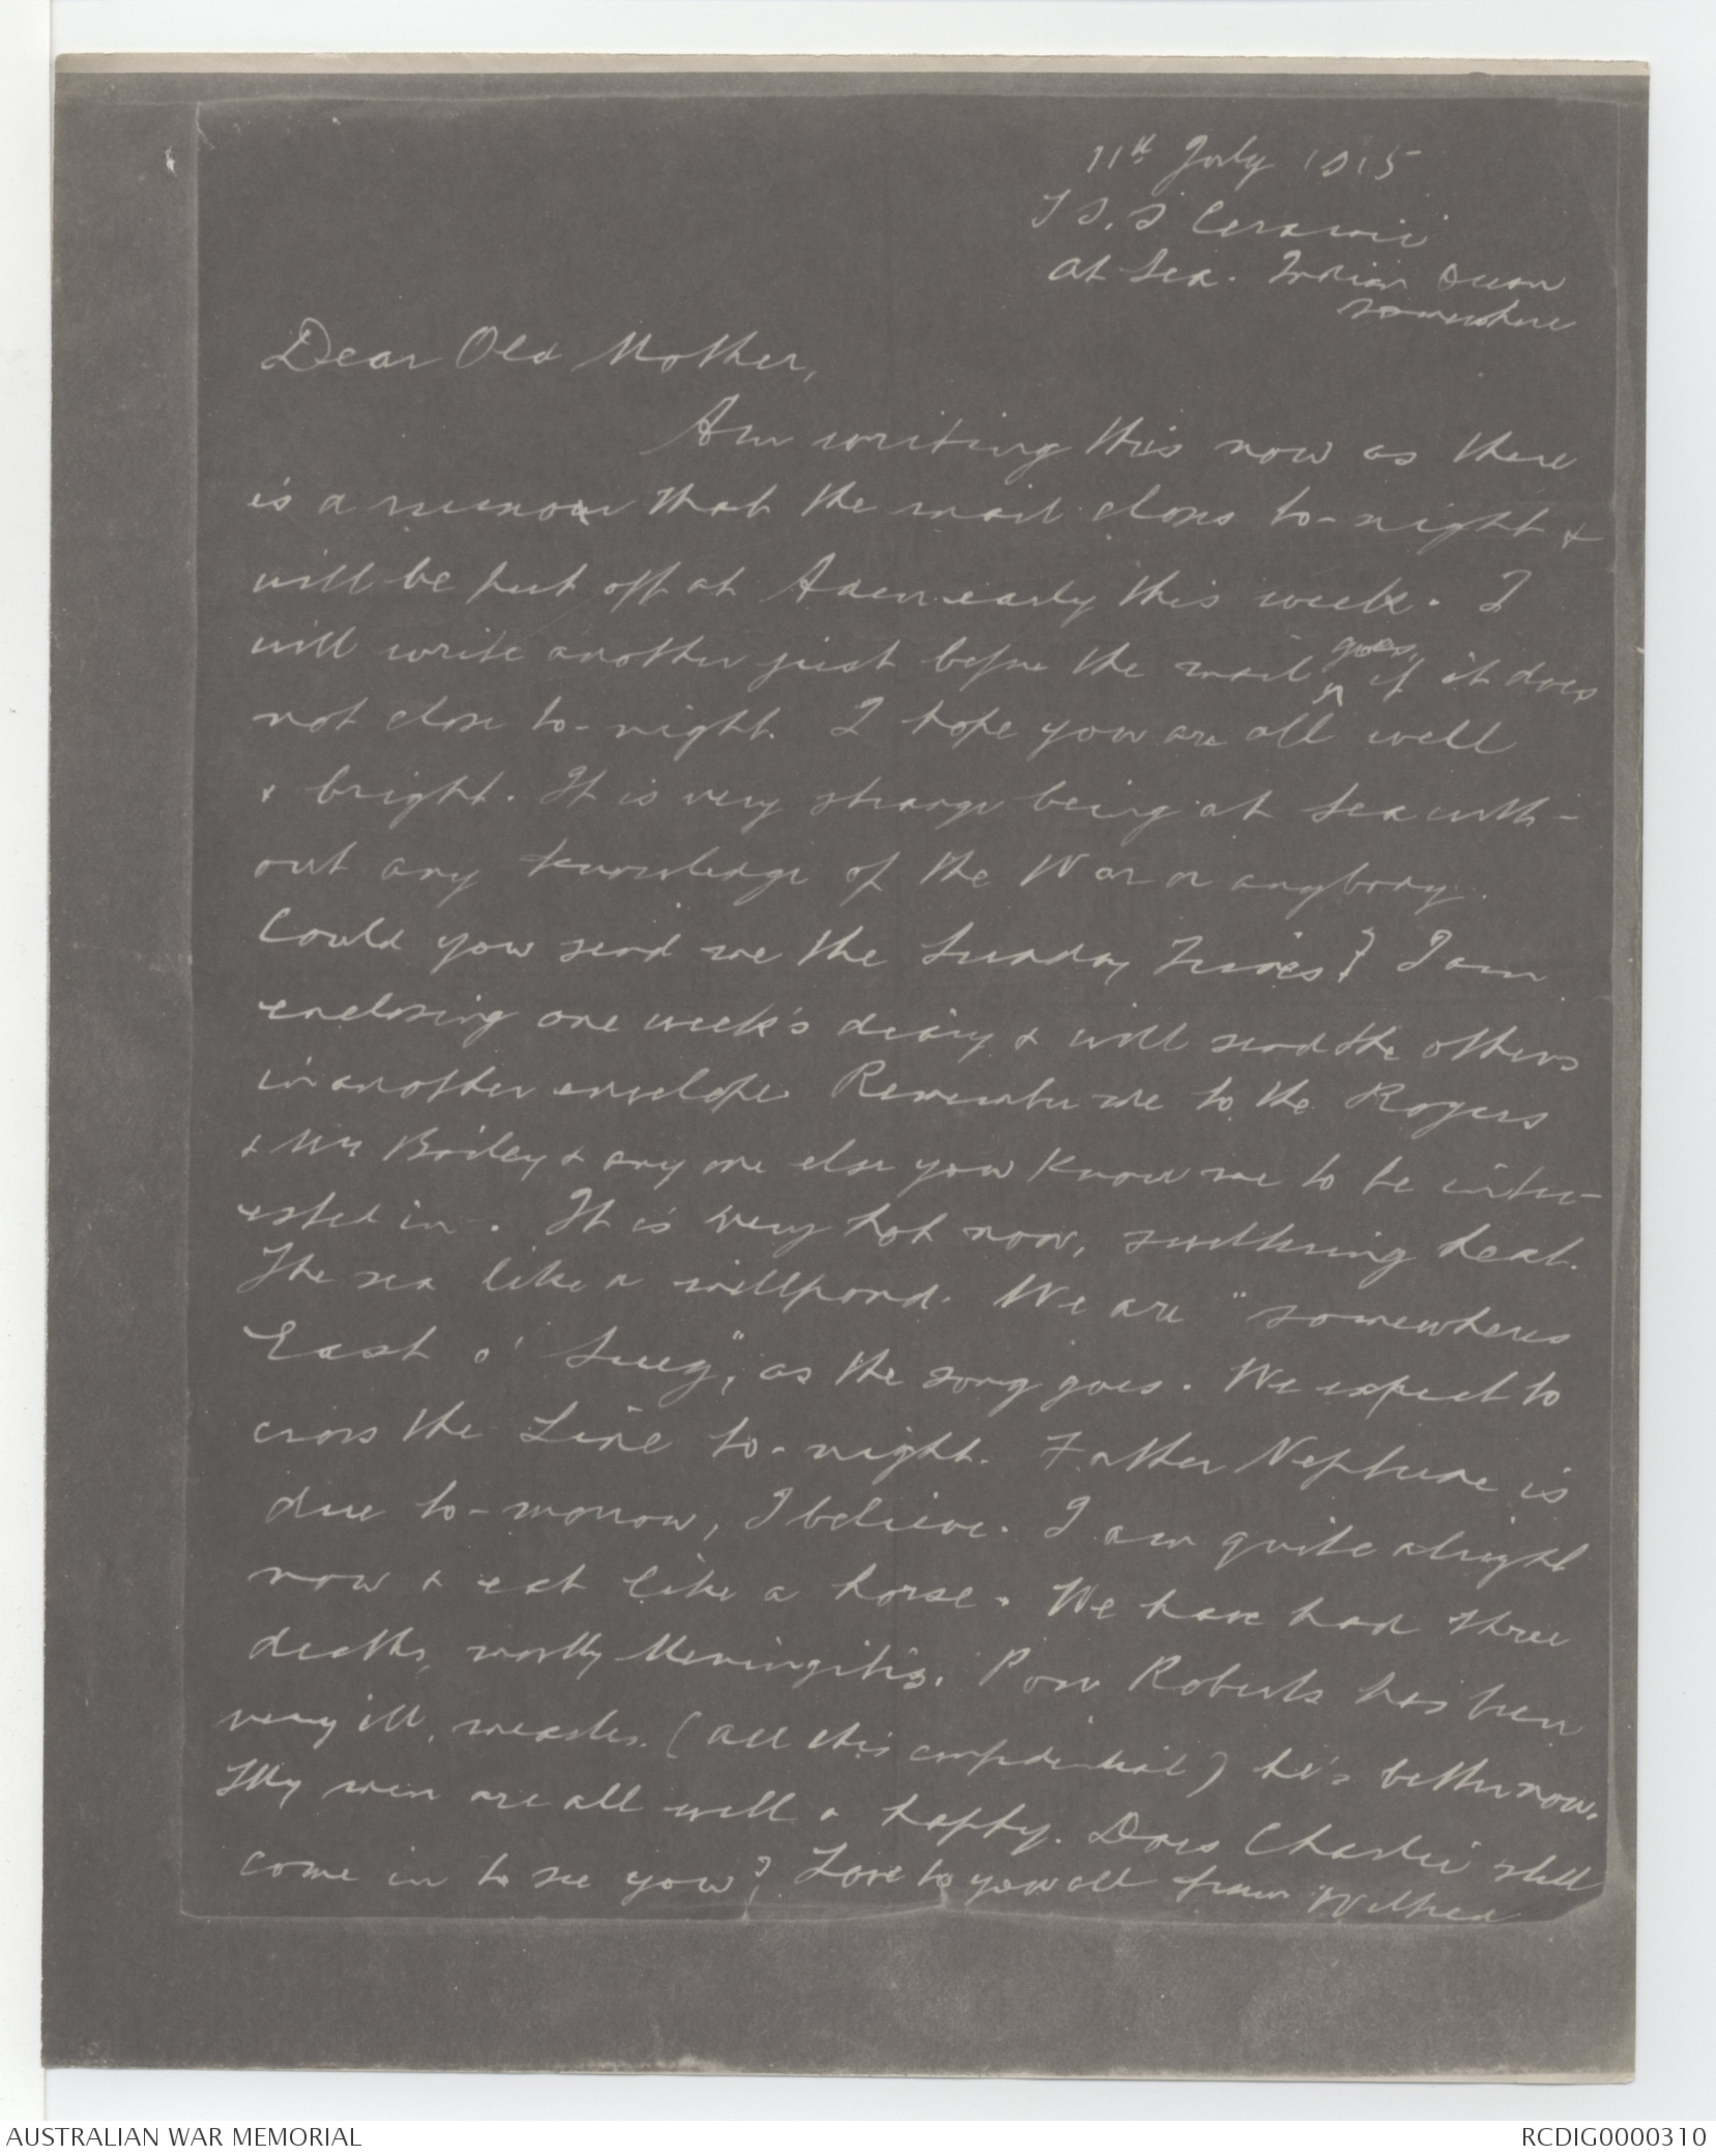 11th July 1915
T S.S Ceramic
At Sea. Indian Ocean
somewhere
Dear Old Mother,
Am writing this now as there
is a rumour that the mail closes to-night &
will be put off at Aden early this week. I
will write another just before the mail goes, if it does
not close to-night. I hope you are all well
& bright. It is very strange being at Sea with-
out any knowledge of the War or anybody.
Could you send me the Sunday Times? I am
enclosing one week's diary & will send the others
in another envelope. Remember me to the Rogers
& Mrs Bailey & any one else you know me to be inter-
ested in. It is very hot now, sweltering heat.
The sea like a millpond. We are "somewheres
East o' Suez", as the song goes. We expect to
cross the Line to-night. Father Neptune is
due to-morrow, I believe. I am quite alright
now & eat like a horse. We have had three
deaths, mostly Meningitis. Poor Roberts has been
very ill, measles. (all this confidential) he's better now.
My men are all well & happy. Does Charlie still
come in to see you? Love to you all from Wilfred
AUSTRALIAN WAR MEMORIAL
RCDIG0000310